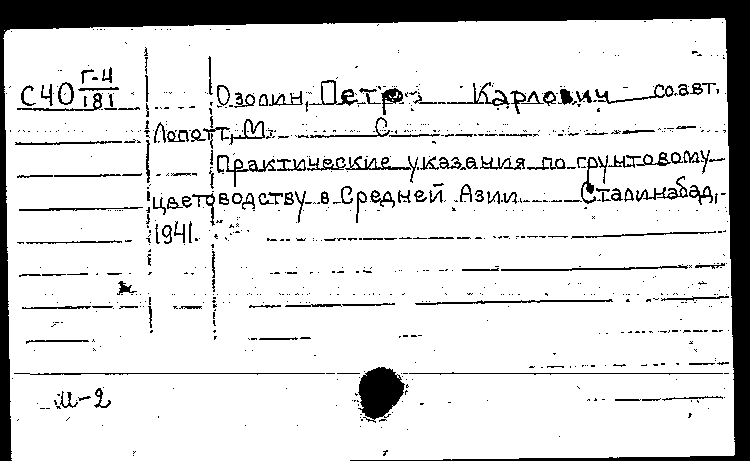 С40 Г-4/181 Озолин, Петр Карлович соавт.
Лопотт, М. С.
Практические указания по грунтовому
цветоводству в Средней Азии Сталинабад,
1941.
М-2